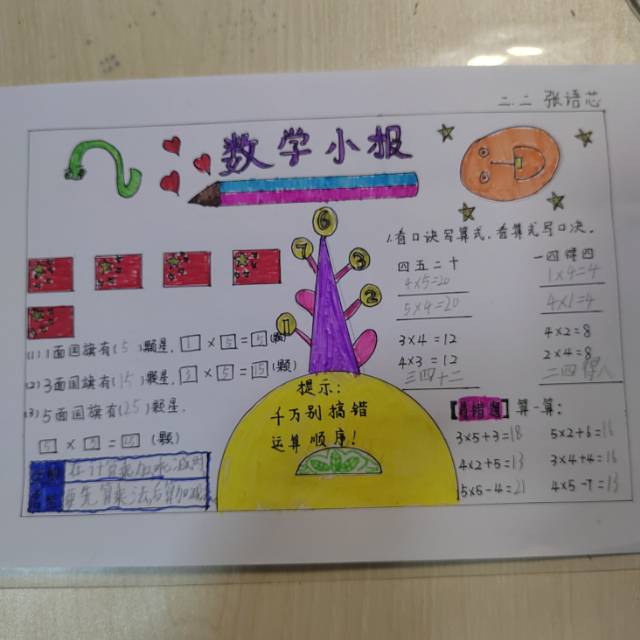 二.二 张语芯
数学小报
6
7
3
2
1
1.看口诀写算式,看算式写口决。
四五二十
4×5=20
5×4=20
一四得四
1×4=4
4×1=4
3×4=12
4×3=12
三四十二
4×2=8
2×4=8
二四得八
(1)1面国旗有(5)颗星,1×5=5(颗)
(2)3面国旗有(15)颗星,3×5=15(颗)
(3)5面国旗有(25)颗星,
(颗)
提示:
千万别搞错
运算顺序!
算一算:
3×5+3=18
5×2+6=16
4×2+5=13
3×4+4=16
5×5-4=21
4×5-7=13
在计算乘加乘减时
要先算乘法后算加减